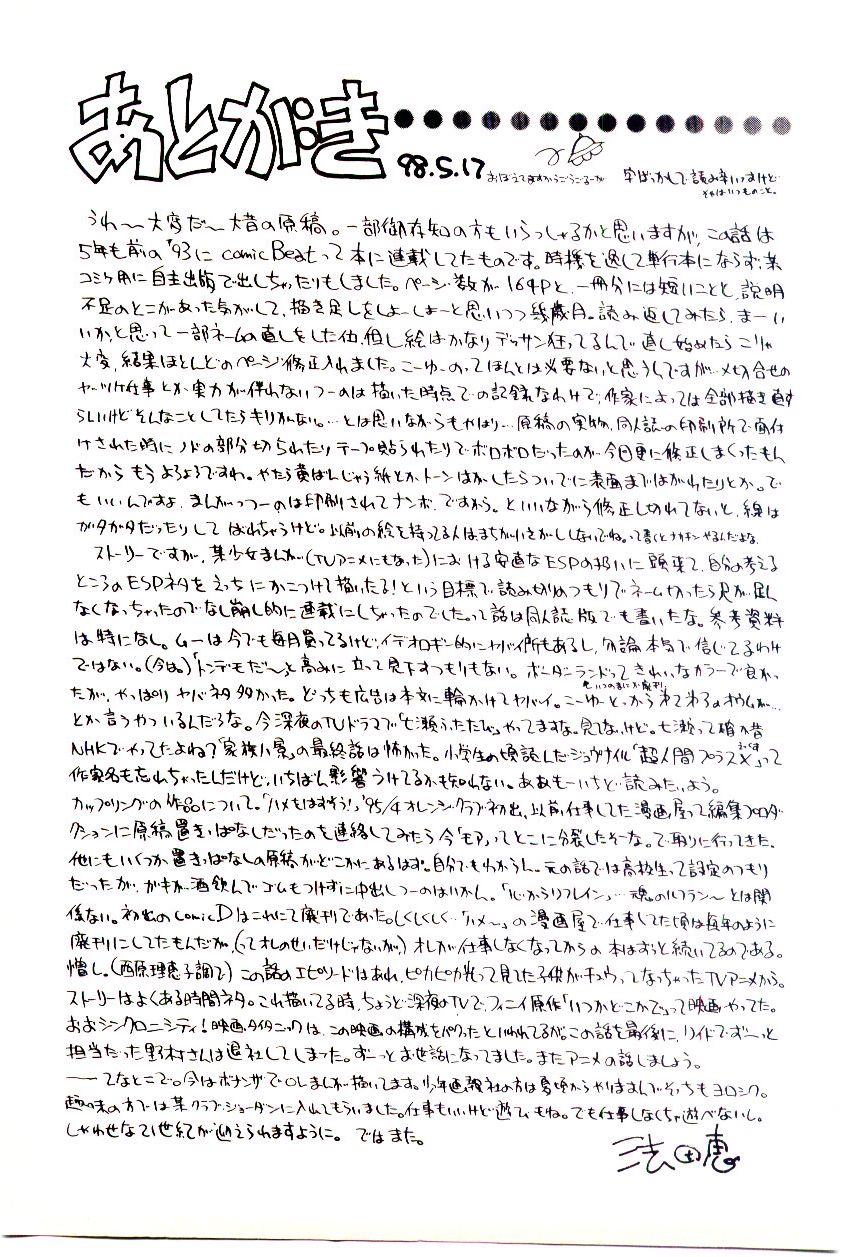 あとがき
98.5.17
おぼえてますかごうごうごーか
字ばっかしで読み辛いっすけど
それはいつものこと。
うわ〜大変だ〜大昔の原稿。一部御存知の方もいらっしゃるかと思いますが、この話は
5年も前の'93にcomic Beatって本に連載してたものです。時機を逸して単行本にならず、某
コミケ用に自主出版で出しちゃったりもしました。ページ数が164Pと、一冊分には短いことと、説明
不足のとこがあった気がして、描き足しをしよーしよーと思いつつ幾歳月。読み返してみたら、まーい
いかと思って一部ネームの直しをした位、但し絵はかなりデッサン狂ってるんで直し始めたらこりゃ
大変、結果ほとんどのページ修正入れました。こーゆーのってほんとは必要ないと思うんですが…〆切合せの
ヤッツケ仕事とか実力が伴わないつーのは描いた時点での記録なわけで、作家によっては全部描き直す
らしいけどそんなことしてたらキリがない。…とは思いながらもやはり…原稿の実物、同人誌の印刷所で面付
けされた時にノドの部分切られたりテープ貼られたりでボロボロだったのが今回更に修正しまくったもん
だからもうよろよろですわ。やたら黄ばんじゃう紙とか、トーンはがしたらついでに表面まではがれたりとか。で
もいいんですよ、まんがっつーのは印刷されてナンボ、ですから。といいながら修正し切れてないと、線は
ガタガタだったりしてばれちゃうけど。以前の絵を持ってる人はまちがいさがししないでね。って書くとナカナカやるんだよな。
ストーリーですが、某少女まんが(TVアニメにもなった)における安直なESPの扱いに頭来て、自分の考える
ところのESPネタをえっちにかこつけて描いたる!という目標で読み切りのつもりでネーム切ったら尺が足ん
なくなっちゃったのでなし崩し的に連載にしちゃったのでした。って話は同人誌版でも書いたな。参考資料
は特になし。ムーは今でも毎月買ってるけど、イデオロギー的にヤバイ所もあるし、勿論本気で信じてるわけ
ではない。(今は。)「トンデモだ〜」と高みに立って見下すつもりもない。ボーダーランドってきれいなカラーで良かっ
といつのまにか廃刊。
たが、やっぱりヤバネタ多かった。どっちも広告は本文に輪かけてヤバイ。こーゆーとっから第2第3のオウムが…
とか言うやついるんだろな。今深夜のTVドラマで「七瀬ふたたび」やってますな。見てないけど。七瀬って確か昔
NHKでやってたよね?「家族八景」の最終話は怖かった。小学生の頃読んだジュヴナイル「超人間プラスX」って
えっくす
作家名も忘れちゃったんだけど、いちばん影響うけてるかも知れない。ああもーいちど読みたいよう。
カップリングの作品について。「ハメをはずそう!」'95/4オレンジクラブ初出、以前仕事してた漫画屋って編集プロダ
クションに原稿置きっぱなしだったのを連絡してみたら今「モア」ってとこに分裂したそーな。で取りに行ってきた。
他にもいくつか置きっぱなしの原稿がどこかにあるはず。自分でもわからん。元の話では高校生って設定のつもり
だったが、ガキが酒飲んでゴムもつけずに中出しつーのはいかん。「心からリフレイン」…魂のルフラン〜とは関
係ない。初出のcomic Dはこれにて廃刊であった。しくしくしく…「ハメ〜」の漫画屋で仕事してた頃は毎年のように
廃刊にしてたもんだが、(ってオレのせいだけじゃないが)オレが仕事しなくなってからの本はずっと続いてるのである。
憎し。(西原理恵子調で)この話のエピソードはあれ、ピカピカ光って見てた子供がキュウってなっちゃったTVアニメから。
ストーリーはよくある時間ネタ。これ描いてる時、ちょうど深夜のTVで、フィニイ原作「いつかどこかで」って映画やってた。
おおシンクロニシティ!映画タイタニックは、この映画の構成をパクったといわれてるが。この話を最後に、リイドでず〜っと
担当だった野村さんは退社してしまった。ずーっとお世話になってました。またアニメの話しましょう。
――てなとこで。今はボナンザで少しまんが描いてます。少年画報社の方は夏頃からやりますんでそっちもヨロシク。
趣味の方では某クラブ・ジョーダンに入れてもらいました。仕事もいいけど遊びもね。でも仕事しなくちゃ遊べないし。
しゃわせな21世紀が迎えられますように。ではまた。
法田恵